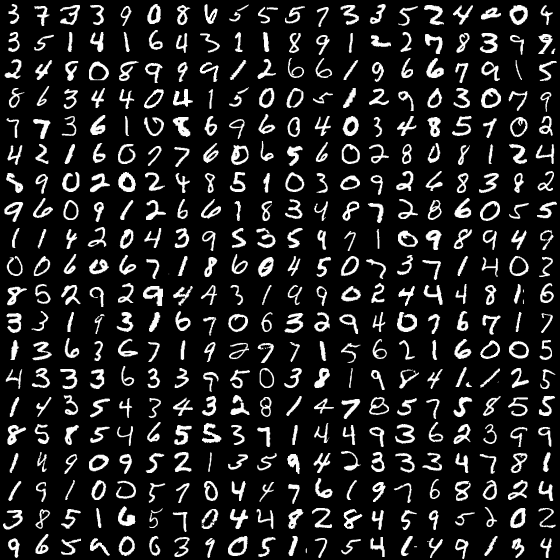 3 7 3 3 9 0 8 6 5 5 5 7 3 3 5 2 4 2 0 4
3 5 1 4 1 6 4 3 1 1 8 9 1 2 2 7 8 3 9 9
2 4 8 0 8 9 9 9 1 2 6 6 1 9 6 6 7 9 1 5
8 6 3 4 4 0 4 1 5 0 0 5 1 2 9 0 3 0 7 9
7 7 3 6 1 0 8 6 9 6 0 4 0 3 4 8 5 7 0 8
4 2 1 6 0 7 7 6 0 6 5 6 0 2 8 0 8 1 2 4
8 9 0 2 0 2 4 8 5 1 0 3 0 9 2 6 8 3 8 2
9 6 0 9 1 2 6 6 1 8 3 4 8 7 2 8 6 0 5 5
1 1 4 2 0 4 3 9 5 3 5 9 7 1 0 9 8 9 4 9
0 0 6 0 6 7 1 8 6 0 4 5 0 7 3 7 1 4 0 3
8 5 2 9 2 9 4 4 3 1 9 9 0 2 4 4 4 8 1 6
3 3 1 9 3 1 6 7 0 6 3 2 9 4 0 7 6 7 1 7
1 3 6 3 6 7 1 9 2 7 7 1 5 6 2 1 6 0 0 5
4 3 3 3 6 3 3 9 5 0 3 8 1 9 8 4 1 1 2 5
1 4 3 5 4 3 4 3 2 8 1 4 7 8 5 7 5 8 5 5
8 5 8 5 4 6 5 5 3 7 1 4 4 9 3 6 2 3 9 9
1 4 9 0 9 5 2 1 3 5 9 4 2 3 3 3 4 7 8 1
1 9 1 0 0 5 7 0 4 4 7 6 1 9 7 6 8 0 2 4
3 8 5 1 6 5 7 0 4 4 8 2 8 4 5 9 5 2 0 2
9 6 5 9 0 6 3 9 0 5 1 7 5 4 1 4 9 1 3 4